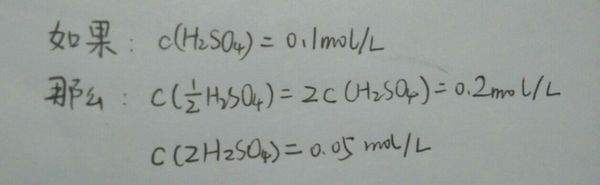 如果：c(H₂SO₄) = 0.1mol/L
那么：c(½H₂SO₄) = 2c(H₂SO₄) = 0.2mol/L
c(2H₂SO₄) = 0.05 mol/L